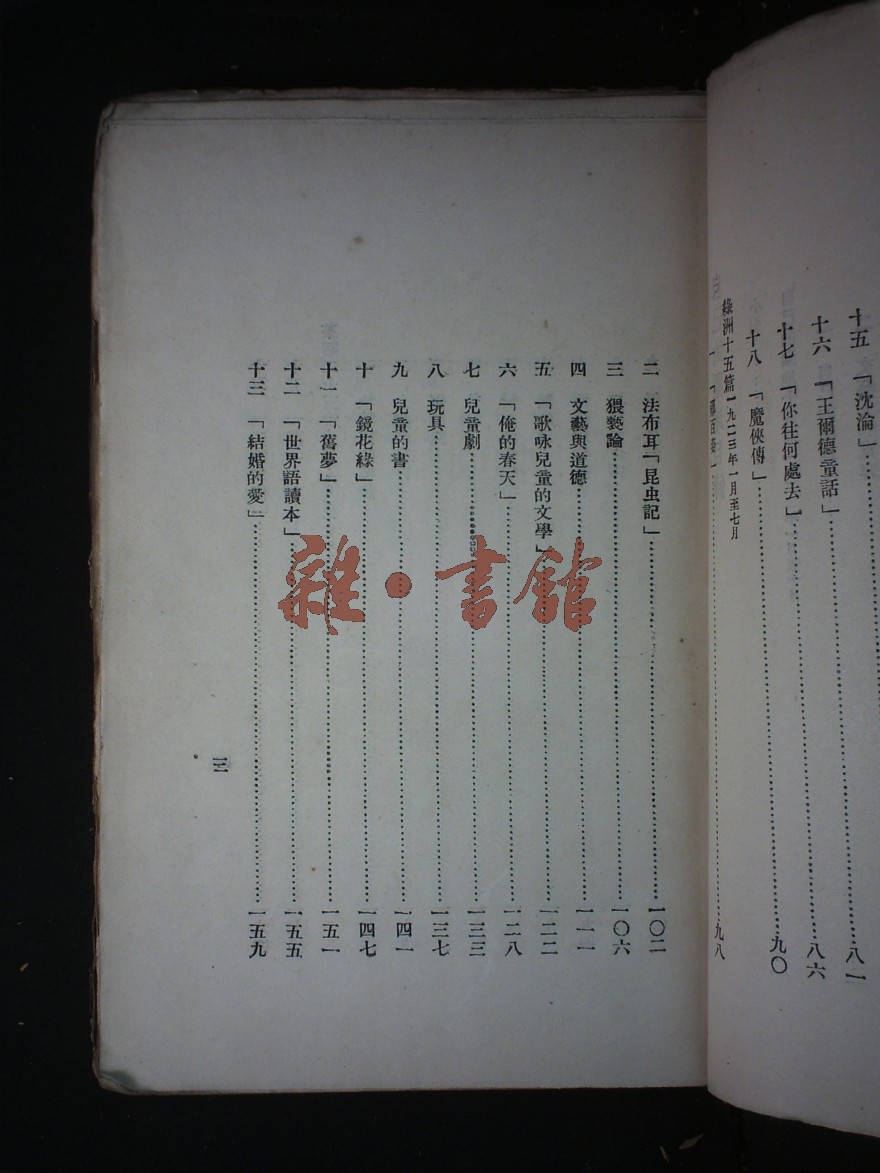 十五 「沈淪」……八一
十六 「王爾德童話」……八六
十七 「你往何處去」……九〇
十八 「魔俠傳」……
綠洲十五篇 一九二三年一月至七月
一 ……九八
二 法布耳「昆虫記」……一〇二
三 猥褻論……一〇六
四 文藝與道德……一一一
五 「歌咏兒童的文學」……一二二
六 「俺的春天」……一二八
七 兒童劇……一三三
八 玩具……一三七
九 兒童的書……一四一
十 「鏡花緣」……一四七
十一 「舊夢」……一五一
十二 「世界語讀本」……一五五
十三 「結婚的愛」……一五九
三
雜·書館